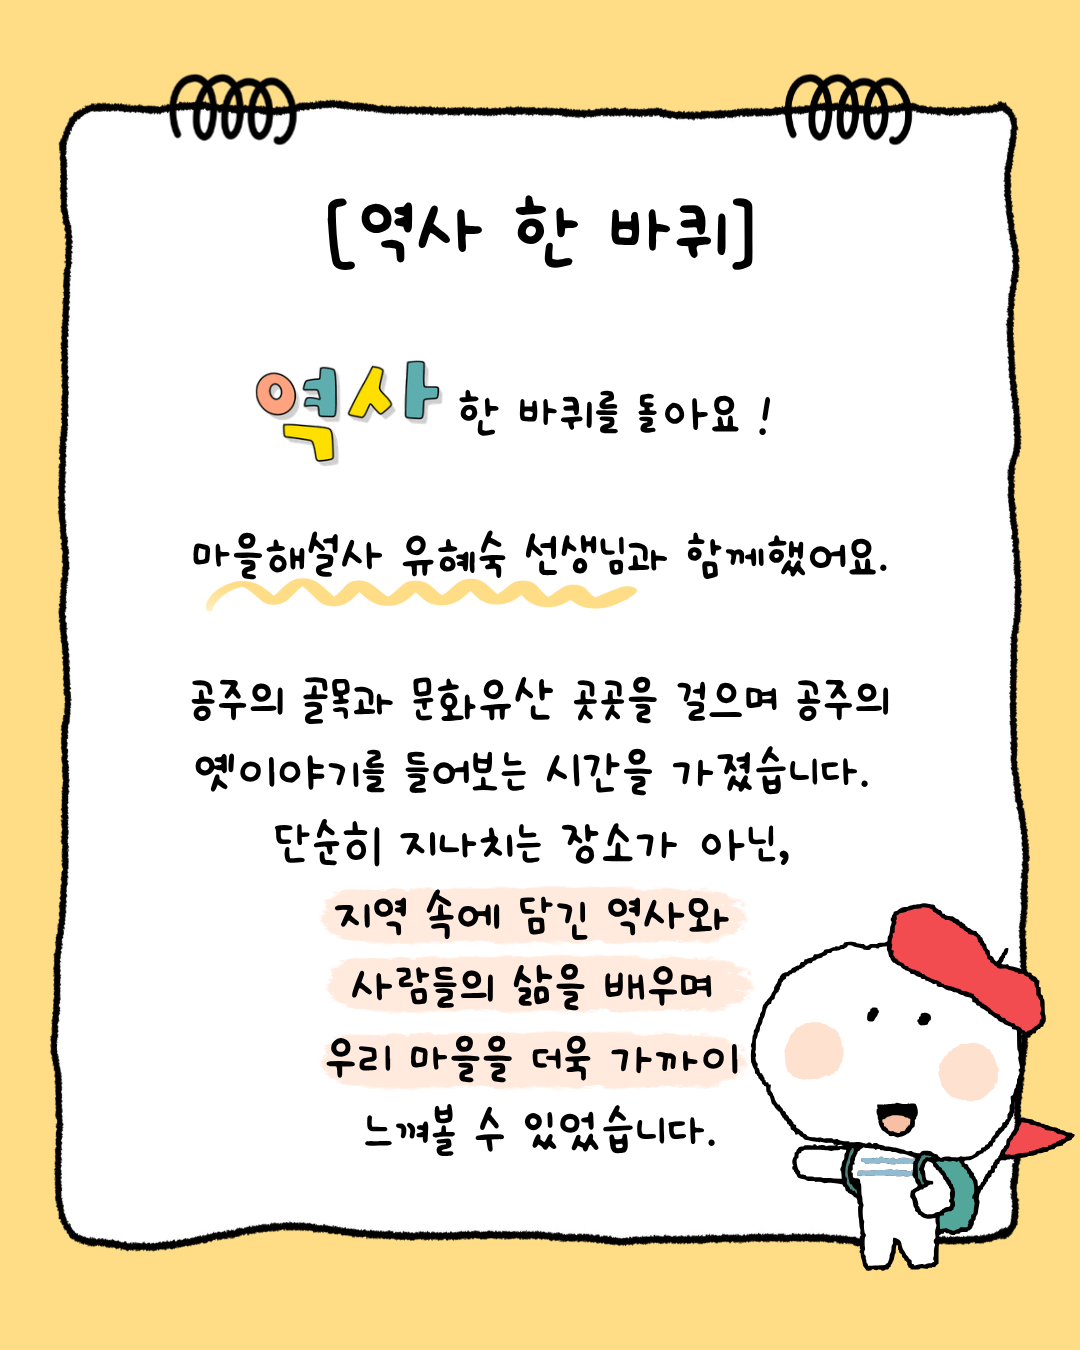 [역사 한 바퀴]
역사 한 바퀴를 돌아요 !
마을해설사 유혜숙 선생님과 함께했어요.
공주의 골목과 문화유산 곳곳을 걸으며 공주의
옛이야기를 들어보는 시간을 가졌습니다.
단순히 지나치는 장소가 아닌,
지역 속에 담긴 역사와
사람들의 삶을 배우며
우리 마을을 더욱 가까이
느껴볼 수 있었습니다.